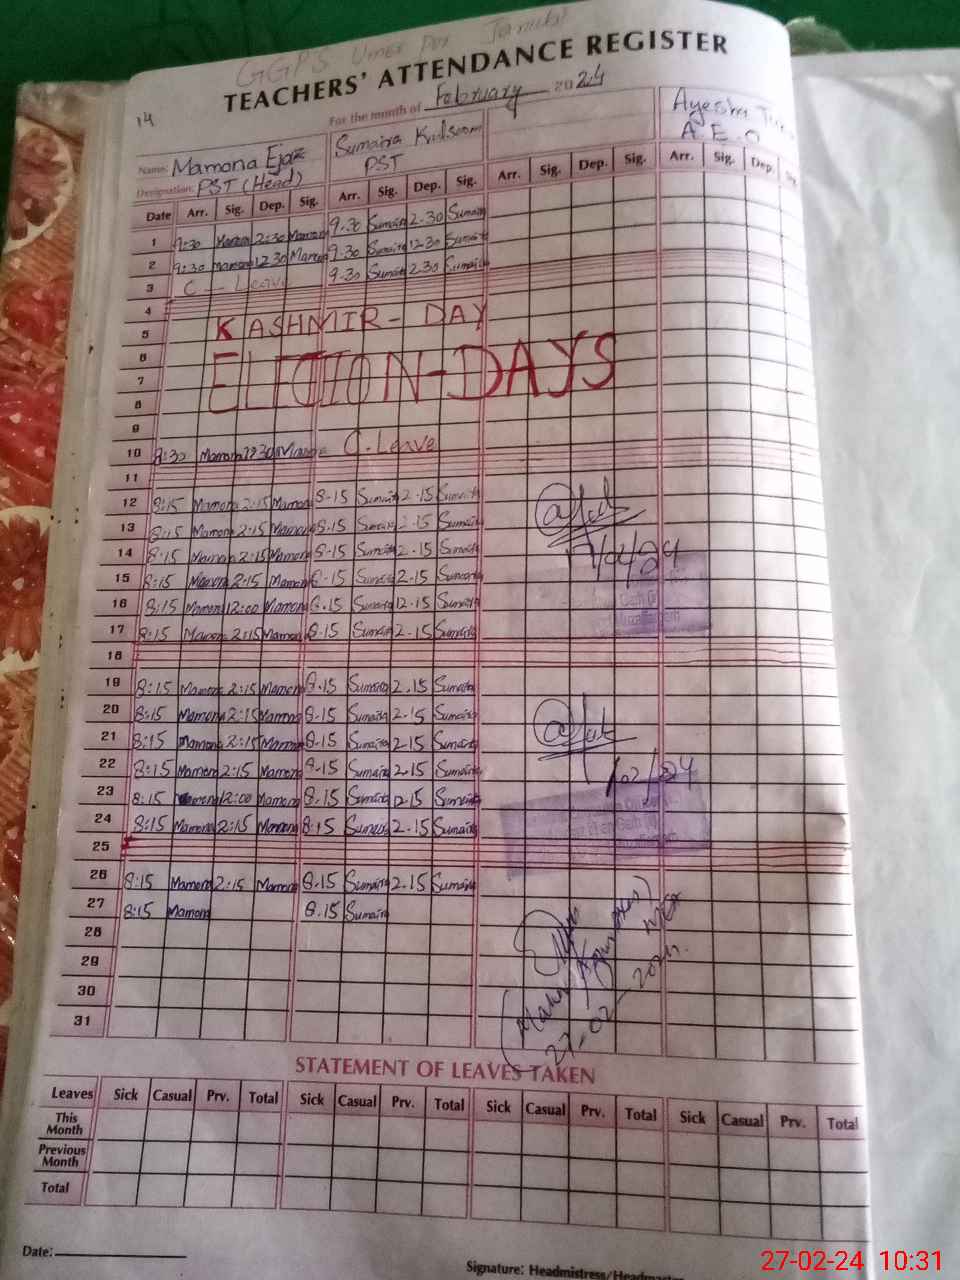 GGPS Umer Pur
TEACHERS' ATTENDANCE REGISTER
14
For the month of February 2024
Name: Mamona Ejaz Sumaira Kulsoom Ayesha
Designation: PST (Head) PST A.E.O
Date Arr. Sig. Dep. Sig. Arr. Sig. Dep. Sig. Arr. Sig. Dep. Sig. Arr. Sig. Dep. Sig.
1 9:30 Mamona 2:30 Mamona 9.30 Sumaira 2.30 Sumaira
2 9:30 Mamona 12:30 Mamona 9.30 Sumaira 12.30 Sumaira
3 C - Leave 9.30 Sumaira 2.30 Sumaira
4
5 KASHMIR - DAY
6
7 ELECTION-DAYS
8
9
10 8:30 Mamona C. Leave
11
12 8:15 Mamona 2:15 Mamona 8.15 Sumaira 2.15 Sumaira
13 8:15 Mamona 2:15 Mamona 8.15 Sumaira 2.15 Sumaira
14 8:15 Mamona 2:15 Mamona 8.15 Sumaira 2.15 Sumaira
15 8:15 Mamona 2:15 Mamona 8.15 Sumaira 2.15 Sumaira
16 8:15 Mamona 12:00 Mamona 8.15 Sumaira 12.15 Sumaira
17 8:15 Mamona 2:15 Mamona 8.15 Sumaira 2.15 Sumaira
18
19 8:15 Mamona 2:15 Mamona 8.15 Sumaira 2.15 Sumaira
20 8:15 Mamona 2:15 Mamona 8.15 Sumaira 2.15 Sumaira
21 8:15 Mamona 2:15 Mamona 8.15 Sumaira 2.15 Sumaira
22 8:15 Mamona 2:15 Mamona 8.15 Sumaira 2.15 Sumaira
23 8:15 Mamona 12:00 Mamona 8.15 Sumaira 12.15 Sumaira
24 8:15 Mamona 2:15 Mamona 8.15 Sumaira 2.15 Sumaira
25
26 8:15 Mamona 2:15 Mamona 8.15 Sumaira 2.15 Sumaira
27 8:15 Mamona 8.15 Sumaira
28
29
30
31
27-02-2024
STATEMENT OF LEAVES TAKEN
Leaves Sick Casual Prv. Total Sick Casual Prv. Total Sick Casual Prv. Total Sick Casual Prv. Total
This Month
Previous Month
Total
Date:
Signature: Headmistress/Headmaster
27-02-24 10:31